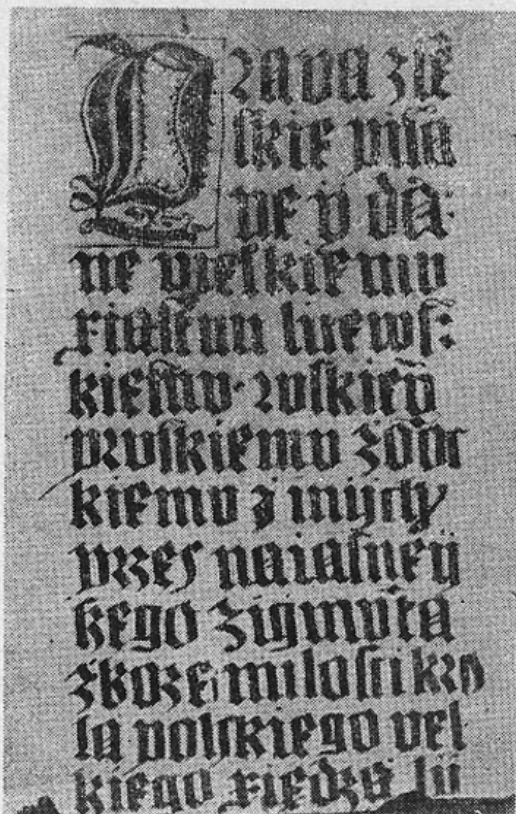 Prava ziē
skie pisā
ne ÿ da:
ne vielkiemu
xiastwu litews:
kiemu ruskieū
pruskiemu żōoc
kiemu z inÿch
przes naiasneÿ
szego zigmūta
z bozei milosci kro
la polskiego vel
kiego xiędza